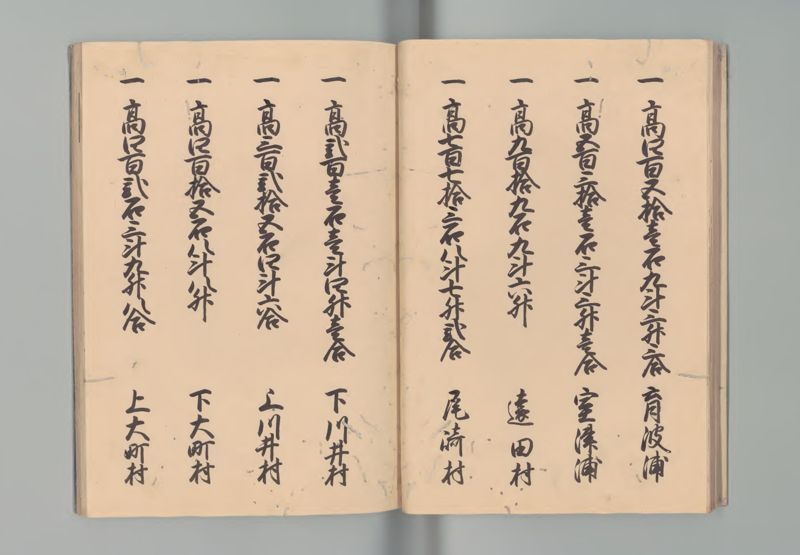 一 高四百五拾壱石九斗三升三合 育波浦
一 高五百三拾壱石三斗三升壱合 室津浦
一 高九百拾九石九斗六升 遠田村
一 高七百七拾三石八斗七升弐合 尾崎村
一 高弐百壱石壱斗四升壱合 下川井村
一 高三百弐拾五石四斗六合 上川井村
一 高四百拾五石八斗八升 下大町村
一 高四百弐石三斗九升八合 上大町村